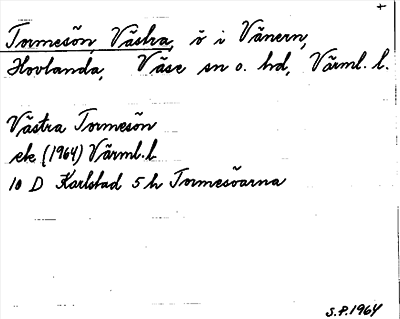 +
Tormesön, Västra, ö i Vänern,
Hovlanda, Väse sn o. hd, Värml. l.
Västra Tormesön
ek (1964) Värml. l
10 D Karlstad 5 h Tormesöarna
S.P. 1964